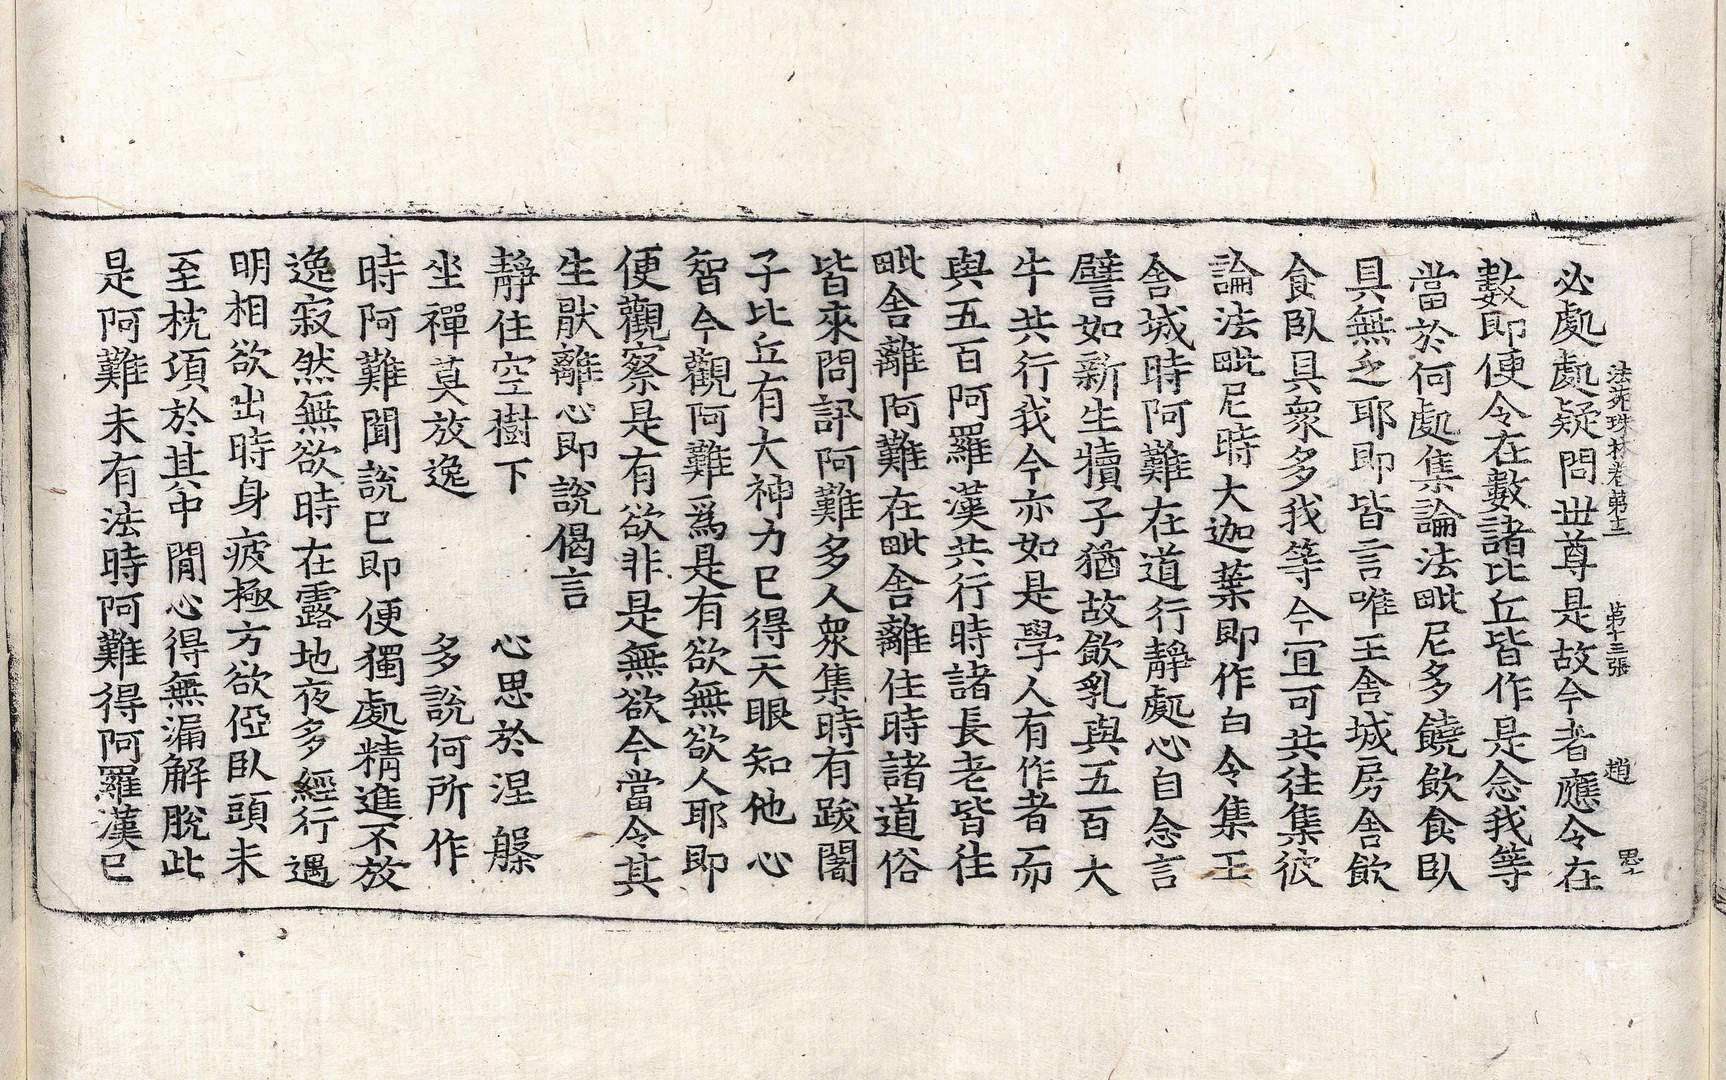 法苑珠林卷第十二 第十三張 趙 思十
必處處疑問世尊是故今者應令在
數即便令在數諸比丘皆作是念我等
當於何處集論法毗尼多饒飲食臥
具無乏耶即皆言唯王舍城房舍飲
食臥具衆多我等今宜可共往集彼
論法毗尼時大迦葉即作白令集王
舍城時阿難在道行靜處心自念言
譬如新生犢子猶故飲乳與五百大
牛共行我今亦如是學人有作者而
與五百阿羅漢共行時諸長老皆往
毗舍離阿難在毗舍離住時諸道俗
皆來問訊阿難多人衆集時有跋闍
子比丘有大神力已得天眼知他心
智今觀阿難爲是有欲無欲人耶即
便觀察是有欲非是無欲今當令其
生猒離心即說偈言
靜住空樹下 心思於涅槃
坐禪莫放逸 多說何所作
時阿難聞說已即便獨處精進不放
逸寂然無欲時在露地夜多經行遇
明相欲出時身疲極方欲俹臥頭未
至枕項於其中間心得無漏解脫此
是阿難未有法時阿難得阿羅漢已